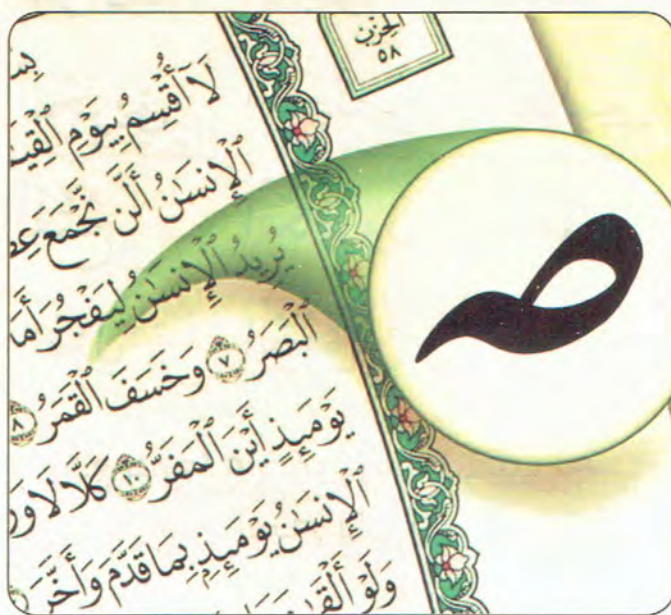 الحِزْب
٥٨
بِسـ
لَآ أُقْسِمُ بِيَوْمِ ٱلْقِيَـ
ٱلْإِنسَٰنُ أَلَّن نَّجْمَعَ عِظـ
يُرِيدُ ٱلْإِنسَٰنُ لِيَفْجُرَ أَمَا
ٱلْبَصَرُ ٧ وَخَسَفَ ٱلْقَمَرُ ٨
يَوْمَئِذٍ أَيْنَ ٱلْمَفَرُّ ١٠ كَلَّا لَا وَزَ
ٱلْإِنسَٰنُ يَوْمَئِذِۭ بِمَا قَدَّمَ وَأَخَّرَ
وَلَوْ أَلْقَىٰ
صـ